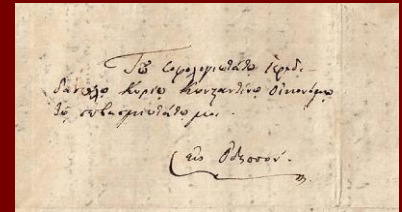 Τῷ Σοφολογιωτάτῳ Ἱεροδι-
δασκάλῳ Κυρίῳ Κωνσταντίνῳ Οἰκονόμῳ
τῷ σεβασμιωτάτῳ μοι.
εἰς Ὀδησσόν.